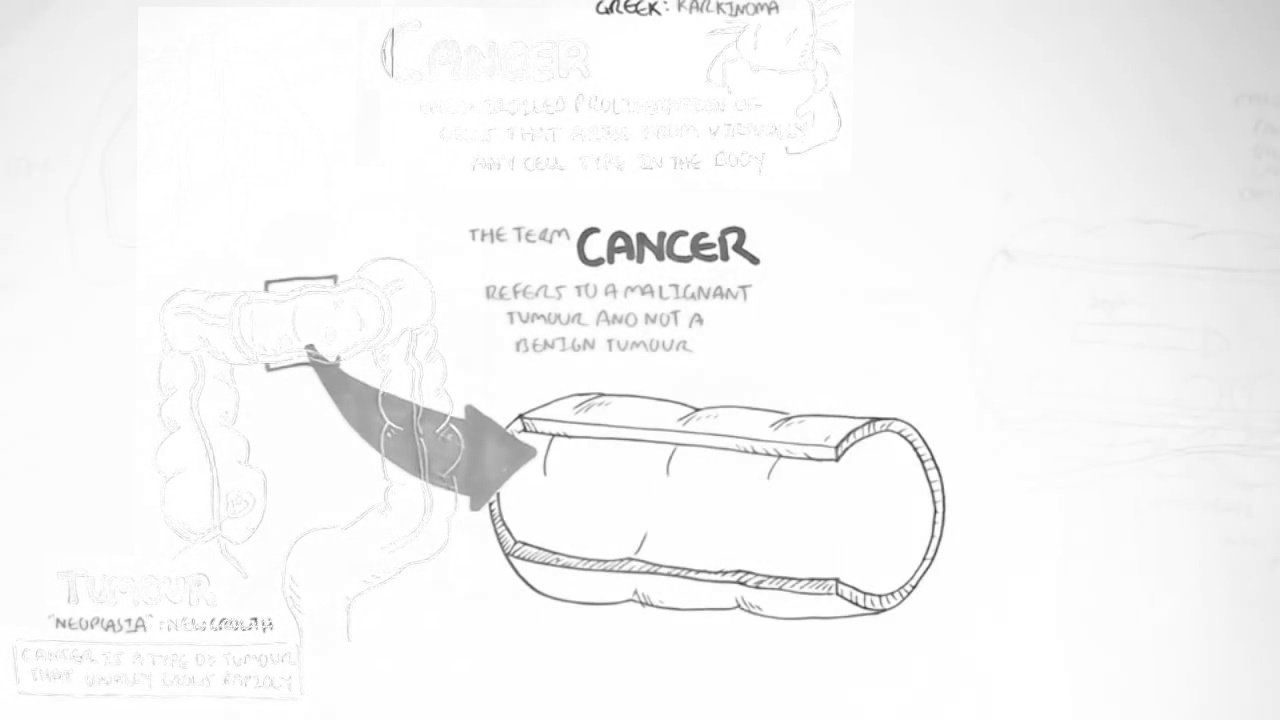 GREEK: KARKINOMA
CANCER
UNCONTROLLED PROLIFERATION OF
CELLS THAT ARISE FROM VIRTUALLY
ANY CELL TYPE IN THE BODY
THE TERM CANCER
REFERS TO A MALIGNANT
TUMOUR AND NOT A
BENIGN TUMOUR
TUMOUR
"NEOPLASIA": NEW GROWTH
CANCER IS A TYPE OF TUMOUR
THAT USUALLY GROWS RAPIDLY